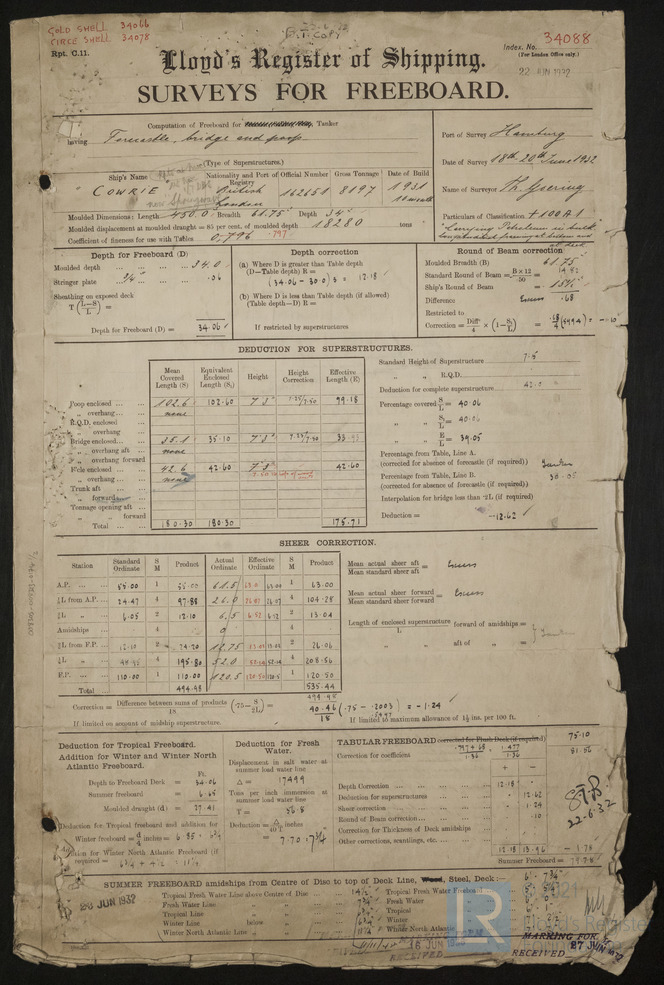 GOLD SHELL 34066
CIRCE SHELL 34078
B.T. Copy
34088
Rpt. C.11.
Index. No.
(For London Office only.)
22 JUN 1932
Lloyd's Register of Shipping.
SURVEYS FOR FREEBOARD.
Computation of Freeboard for Tanker
having Forecastle, bridge and poop
(Type of Superstructures).
Port of Survey Hamburg
Date of Survey 18th 20th June 1932
Name of Surveyor
Particulars of Classification +100A1
Carrying Petroleum in bulk
Ship's Name Nationality and Port of Registry Official Number Gross Tonnage Date of Build
COWRIE British London 162651 8197 1931
Moulded Dimensions: Length 450.0 Breadth 61.75 Depth 34
Moulded displacement at moulded draught = 85 per cent. of moulded depth 18280 tons
Coefficient of fineness for use with Tables 0,796 .797
Depth for Freeboard (D)
Moulded depth 34.0
Stringer plate .06
Sheathing on exposed deck
T (L-S/L)
Depth for Freeboard (D) = 34.06
Depth correction
(a) Where D is greater than Table depth
(D—Table depth) R =
(34.06 - 30.0) 3 = 12.18
(b) Where D is less than Table depth (if allowed)
(Table depth—D) R =
If restricted by superstructures
Round of Beam correction
Moulded Breadth (B) 61.75
Standard Round of Beam = B×12/50 = 14.82
Ship's Round of Beam =
Difference Excess .68
Restricted to
Correction = Diff/4 × (1-S₁/L) = .68/4 (.5994) = -.10
DEDUCTION FOR SUPERSTRUCTURES.
Mean Covered Length (S) Equivalent Enclosed Length (S₁) Height Height Correction Effective Length (E)
Poop enclosed 102.6 102.60 7'3" 7.25/7.50 99.18
" overhang none
R.Q.D. enclosed
" overhang
Bridge enclosed 35.1 35.10 7'3" 7.25/7.50 33.93
" overhang aft none
" overhang forward
F'cle enclosed 42.6 42.60 42.60
" overhang none
Trunk aft
" forward
Tonnage opening aft
" forward
Total 180.30 180.30 175.71
Standard Height of Superstructure 7.5
" " R.Q.D.
Deduction for complete superstructure 42.0
Percentage covered S/L = 40.06
" " S₁/L = 40.06
" " E/L = 39.05
Percentage from Table, Line A.
(corrected for absence of forecastle (if required)) Tanker
Percentage from Table, Line B. 30.05
(corrected for absence of forecastle (if required))
Interpolation for bridge less than ·2L (if required)
Deduction = -12.62
SHEER CORRECTION.
Station Standard Ordinate S M Product Actual Ordinate Effective Ordinate S M Product
A.P. 55.00 1 55.00 61.5 63.0 63.00 1 63.00
⅙L from A.P. 24.47 4 97.88 26.0 26.07 26.07 4 104.28
⅓L " 6.05 2 12.10 6.5 6.52 6.52 2 13.04
Amidships 4 0 4
⅓L from F.P. 12.10 2 24.20 12.75 13.03 13.03 2 26.06
⅙L " 48.95 4 195.80 52.0 52.14 52.14 4 208.56
F.P. 110.00 1 110.00 120.5 120.50 120.5 1 120.50
Total 494.98 535.44
494.98
Mean actual sheer aft / Mean standard sheer aft = Excess
Mean actual sheer forward / Mean standard sheer forward = Excess
Length of enclosed superstructure forward of amidships / L =
" aft of " = Tanker
Correction = Difference between sums of products / 18 (·75 - S/2L) = 40.46/18 (.75 - .2003) = -1.24
If limited on account of midship superstructure. If limited to maximum allowance of 1½ ins. per 100 ft.
Deduction for Tropical Freeboard.
Addition for Winter and Winter North Atlantic Freeboard.
Ft.
Depth to Freeboard Deck = 34.06
Summer freeboard = 6.65
Moulded draught (d) = 27.41
Deduction for Tropical freeboard and addition for
Winter freeboard = d/4 inches = 6.85 = 6¾
Addition for Winter North Atlantic Freeboard (if required) = 6¾ + 4½ = 11¼
Deduction for Fresh Water.
Displacement in salt water at summer load water line
Δ = 17499
Tons per inch immersion at summer load water line
T = 56.8
Deduction = Δ/40 T inches
= 7.70 = 7¾
TABULAR FREEBOARD corrected for Flush Deck (if required) 75.10
Correction for coefficient .797+.68/1.36 1.477/1.36 81.56
+ -
Depth Correction 12.18
Deduction for superstructures 12.62
Sheer correction 1.24
Round of Beam correction .10
Correction for Thickness of Deck amidships
Other corrections, scantlings, etc.
12.18 13.96 -1.78
Summer Freeboard = 79.78
22.6.32
SUMMER FREEBOARD amidships from Centre of Disc to top of Deck Line, Wood, Steel, Deck:—
Tropical Fresh Water Line above Centre of Disc 14½" Tropical Fresh Water Freeboard
Fresh Water Line " " 7¾" Fresh Water "
Tropical Line " " 6¾" Tropical "
Winter Line below " 6¾" Winter "
Winter North Atlantic Line " " 11¼" Winter North Atlantic "
23 JUN 1932
16 JUN
RECEIVED
MARKING FOR
RECEIVED 27 JUN 1932
LR
Lloyd's Register
Foundation